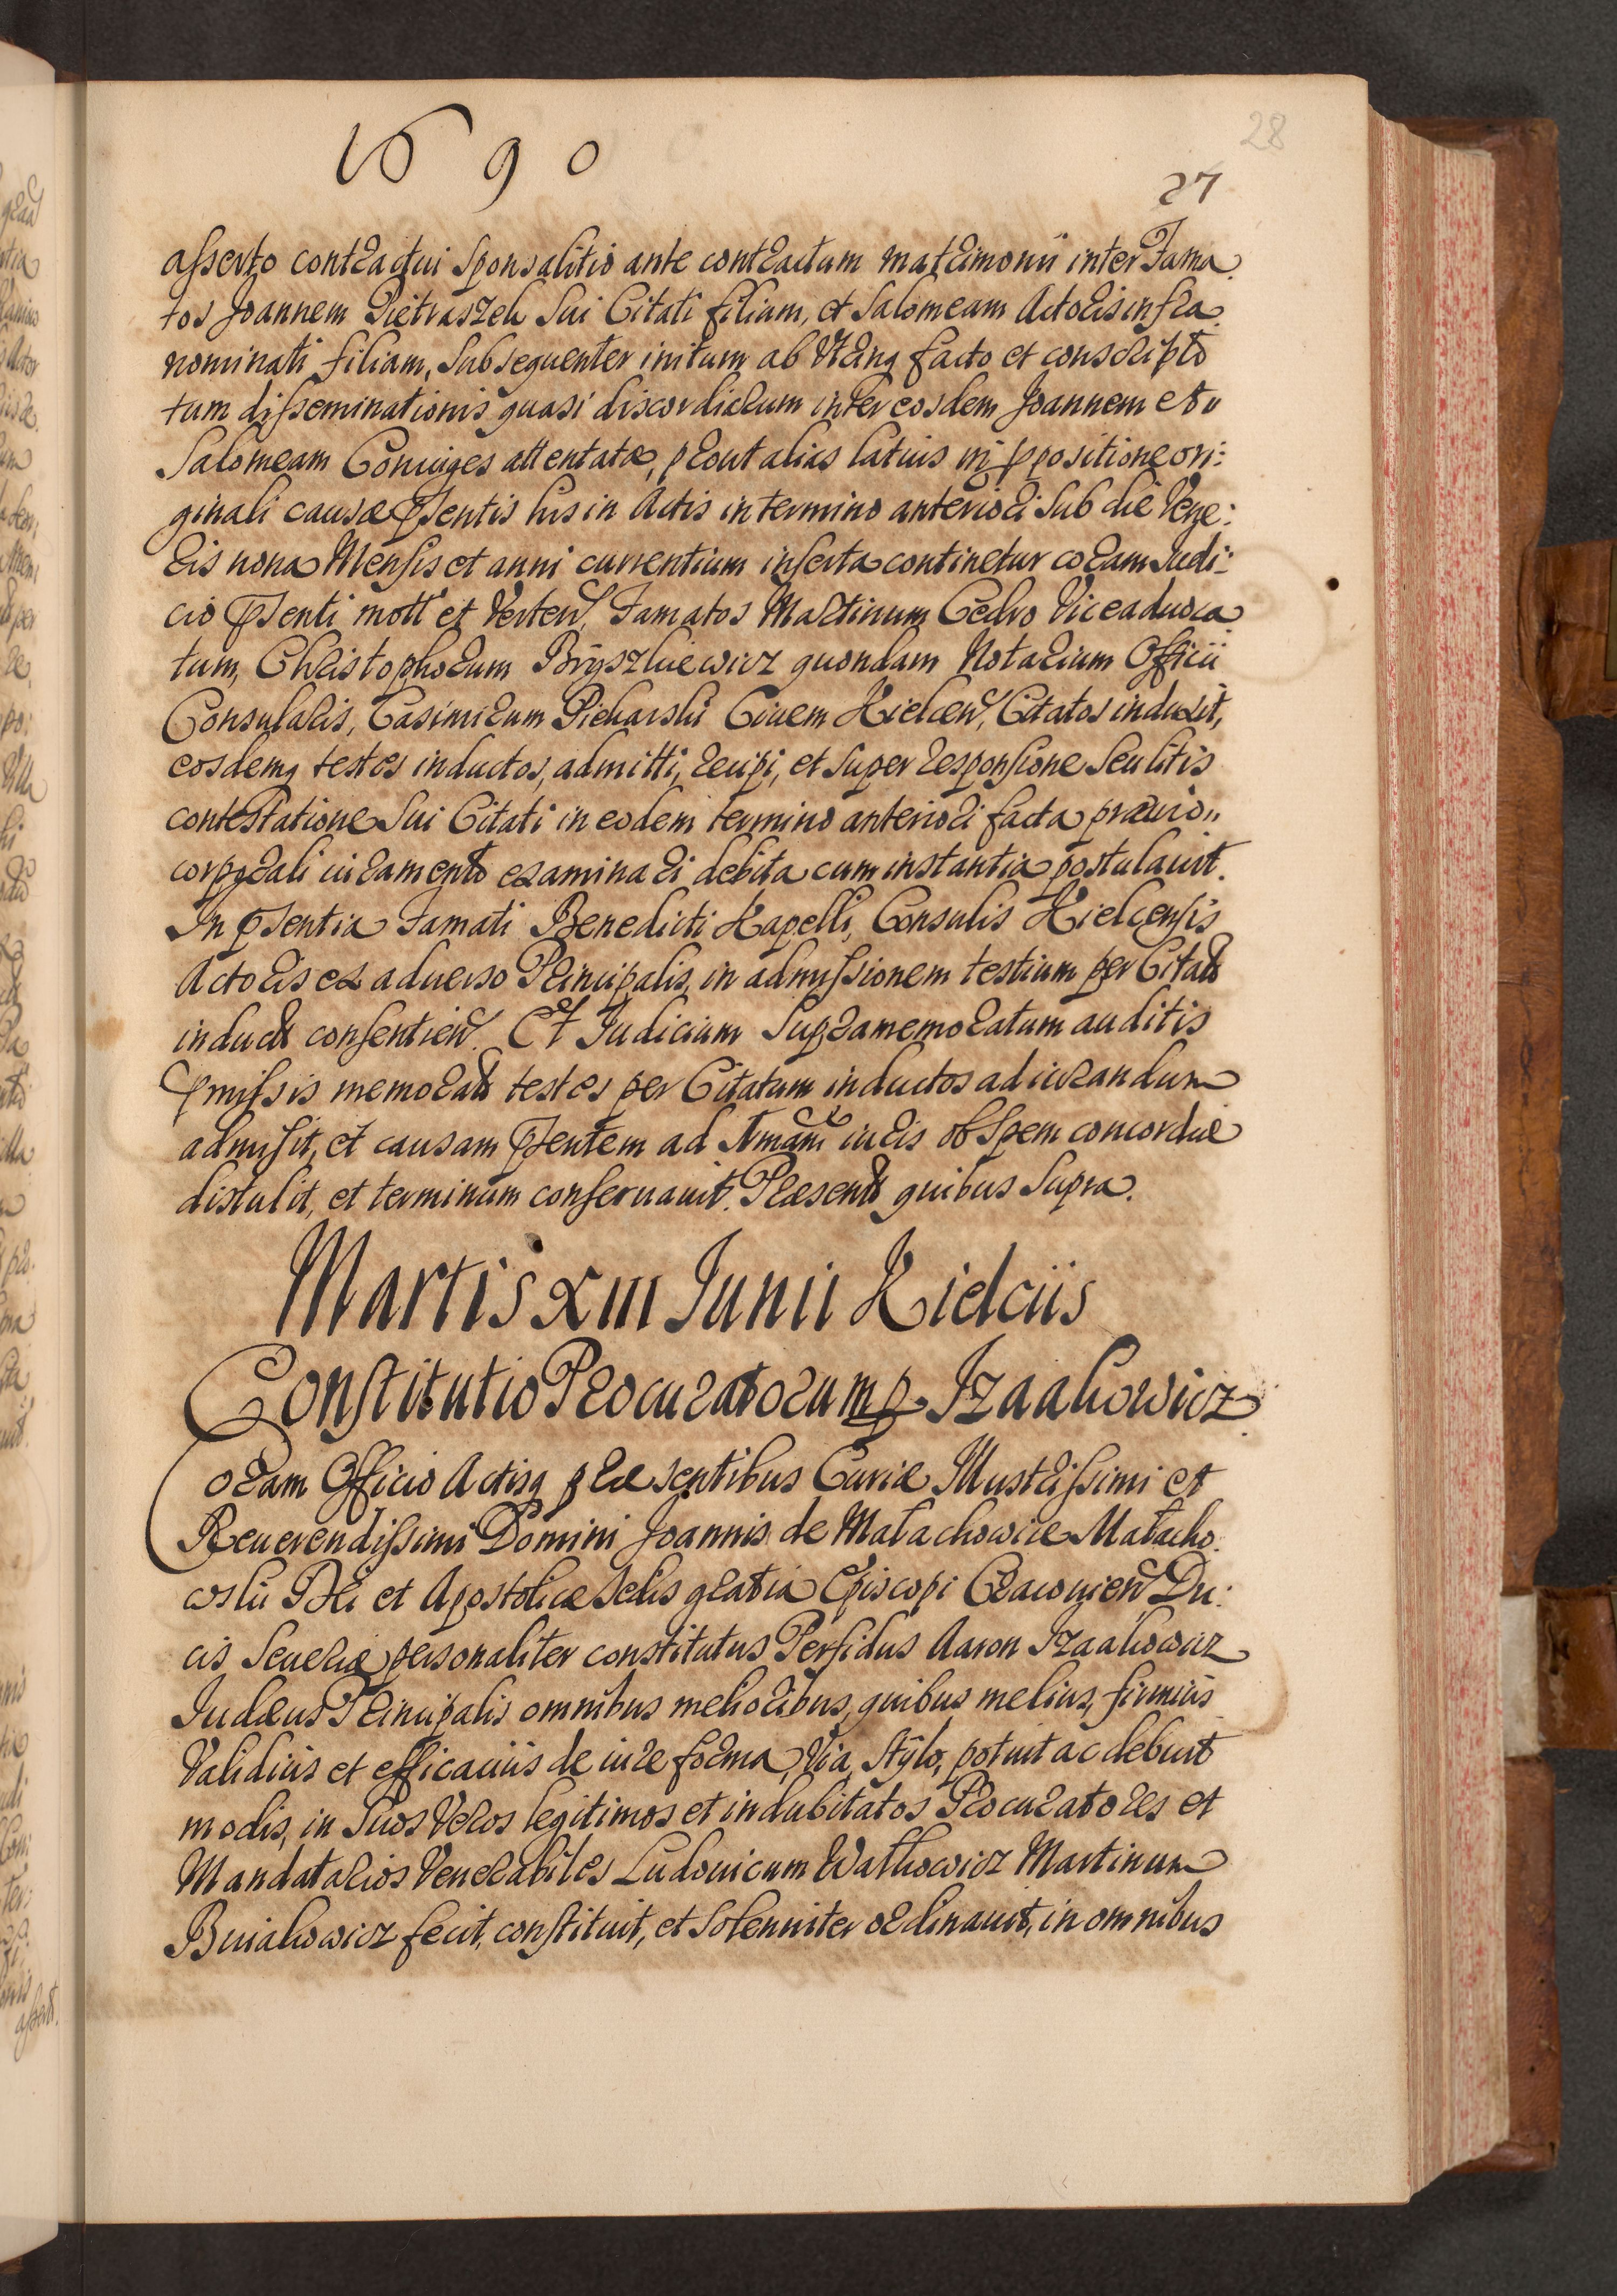 1690
28
27
asserto contractui sponsalitio ante contractum matrimonii inter Fama-
tos Joannem Pietraszek sui Citati filium, et Salomeam Actoris infra
nominati filiam, subsequenter initum ab utrinq facto et conscripto
tum disseminationis quasi discordiarum inter eosdem Joannem et
Salomeam Coniuges attentatæ, prout alias latius in ppositione ori:
ginali causæ pſentis his in Actis in termino anteriori sub die Vene:
ris nona Mensis et anni currentium inserta continetur coram Iudi:
cio pſenti mott et Verten, Famatos Martinum Cedro Viceaduoca
tum, Christophorum Bryszkiewicz quondam Notarium Officii
Consularis, Casimirum Piekarski Ciuem Kielcen, Citatos induxit,
eosdemq testes inductos, admitti, recipi, et super responsione seu litis
contestatione sui Citati in eodem termino anteriori facta præuio
corporali iuramento examinari debita cum instantia postulauit.
In pſentia Famati Benedicti Kapelli, Consulis Kielcensis
Actoris ex aduerso Principalis, in admissionem testium per Citat
induct consentien. Et Iudicium supramemoratum auditis
pmissis memorat testes per Citatum inductos ad iurandum
admisit, et causam pſentem ad iuris ob spem concordiæ
distulit, et terminum conseruauit. Præsent quibus supra.
Martis XIII Iunii Kielciis
Constitutio Procuratorum p Izaakowicz
Coram Officio Actisq præsentibus Curiæ Illustrissimi et
Reuerendissimi Domini Joannis de Małachowice Małacho:
wski Dei et Apostolicæ Sedis gratia Episcopi Cracovien Du:
cis Seueriæ personaliter constitutus Perfidus Aaron Izaakowicz
Iudæus Principalis omnibus melioribus, quibus melius, firmius
Validius et efficacius de iure forma, Via, Stylo, potuit ac debuit
modis, in suos Veros legitimos et indubitatos Procuratores et
Mandatarios Venerabiles Ludouicum Wathowicz Martinum
Buiakowicz fecit, constituit, et solenniter ordinauit, in omnibus